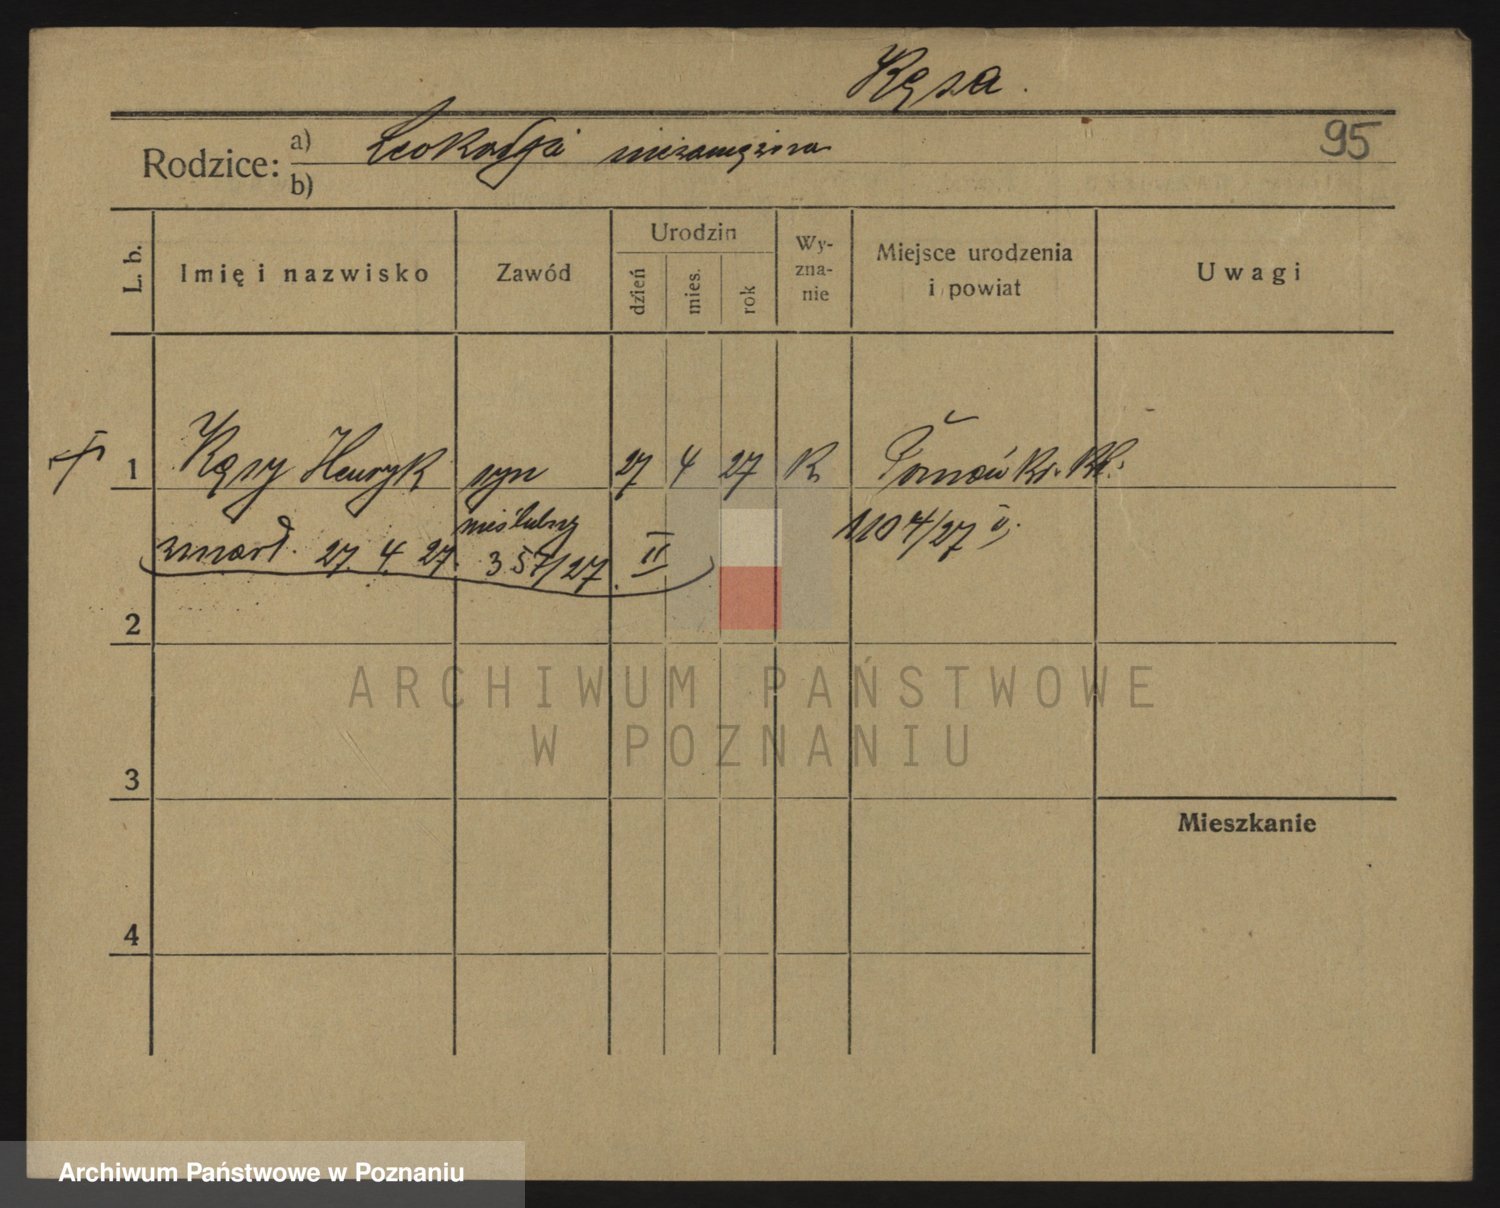 Kęsa.
Rodzice: a) Leokadja niezamężna
b)
95
L. b. Imię i nazwisko Zawód Urodzin dzień mies. rok Wy-zna-nie Miejsce urodzenia i powiat Uwagi
1 Kęsy Henryk syn 27 4 27 K Poznań
nieślubny
zmarł. 27. 4. 27. 357/27. II 1104/27
2
3
Mieszkanie
4
ARCHIWUM PAŃSTWOWE
W POZNANIU
Archiwum Państwowe w Poznaniu